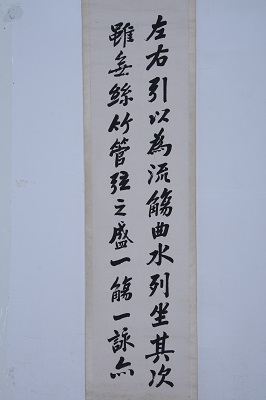 左右引以為流觴曲水列坐其次
雖無絲竹管弦之盛一觴一詠亦